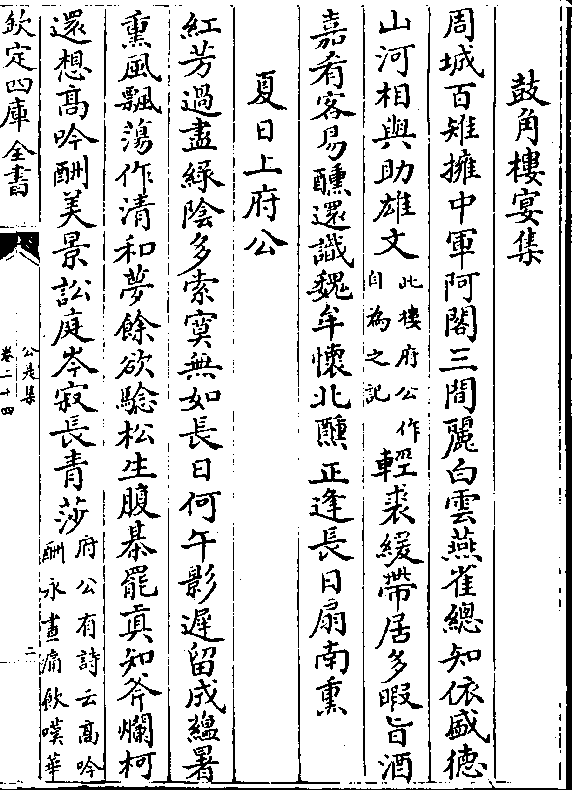 鼓角樓宴集
周城百雉擁中軍阿閣三間麗白雲燕雀總知依盛德
山河相與助雄文此樓府公作自為之記輕裘緩帶居多暇旨酒
嘉肴客易醺還識魏牟懷北闕正逢長日扇南熏
夏日上府公
紅芳過盡綠陰多索寞無如長日何午影遲留成縕暑
熏風飄蕩作清和夢餘欲驗松生腹棊罷真知斧爛柯
還想髙吟酬美景訟庭岑寂長青莎府公有詩云高吟酬永晝痛飲嘆華
欽定四庫全書
公是集
卷二十四
二